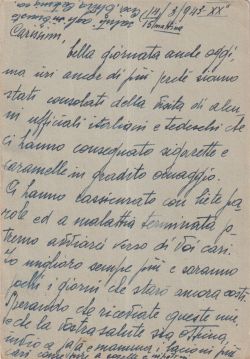 14/3/943 XX°
15 mattino
Carissimi,
bella giornata anche oggi,
ma ieri anche di più, perché siamo
stati consolati della visita di alcu
ni ufficiali italiani e tedeschi che
ci hanno consegnato sigarette e
caramelle in gradito omaggio.
Ci hanno rassicurato con liete pa
role ed a malattia terminata po
tremo avviarci verso di Voi cari.
Io miglioro sempre più e saranno
pochi i giorni che starò ancora così.
Sperando da ricevere queste mie
e de la vostra salute sia ottima,
invio a papà e mamma, i bacioni più
cari